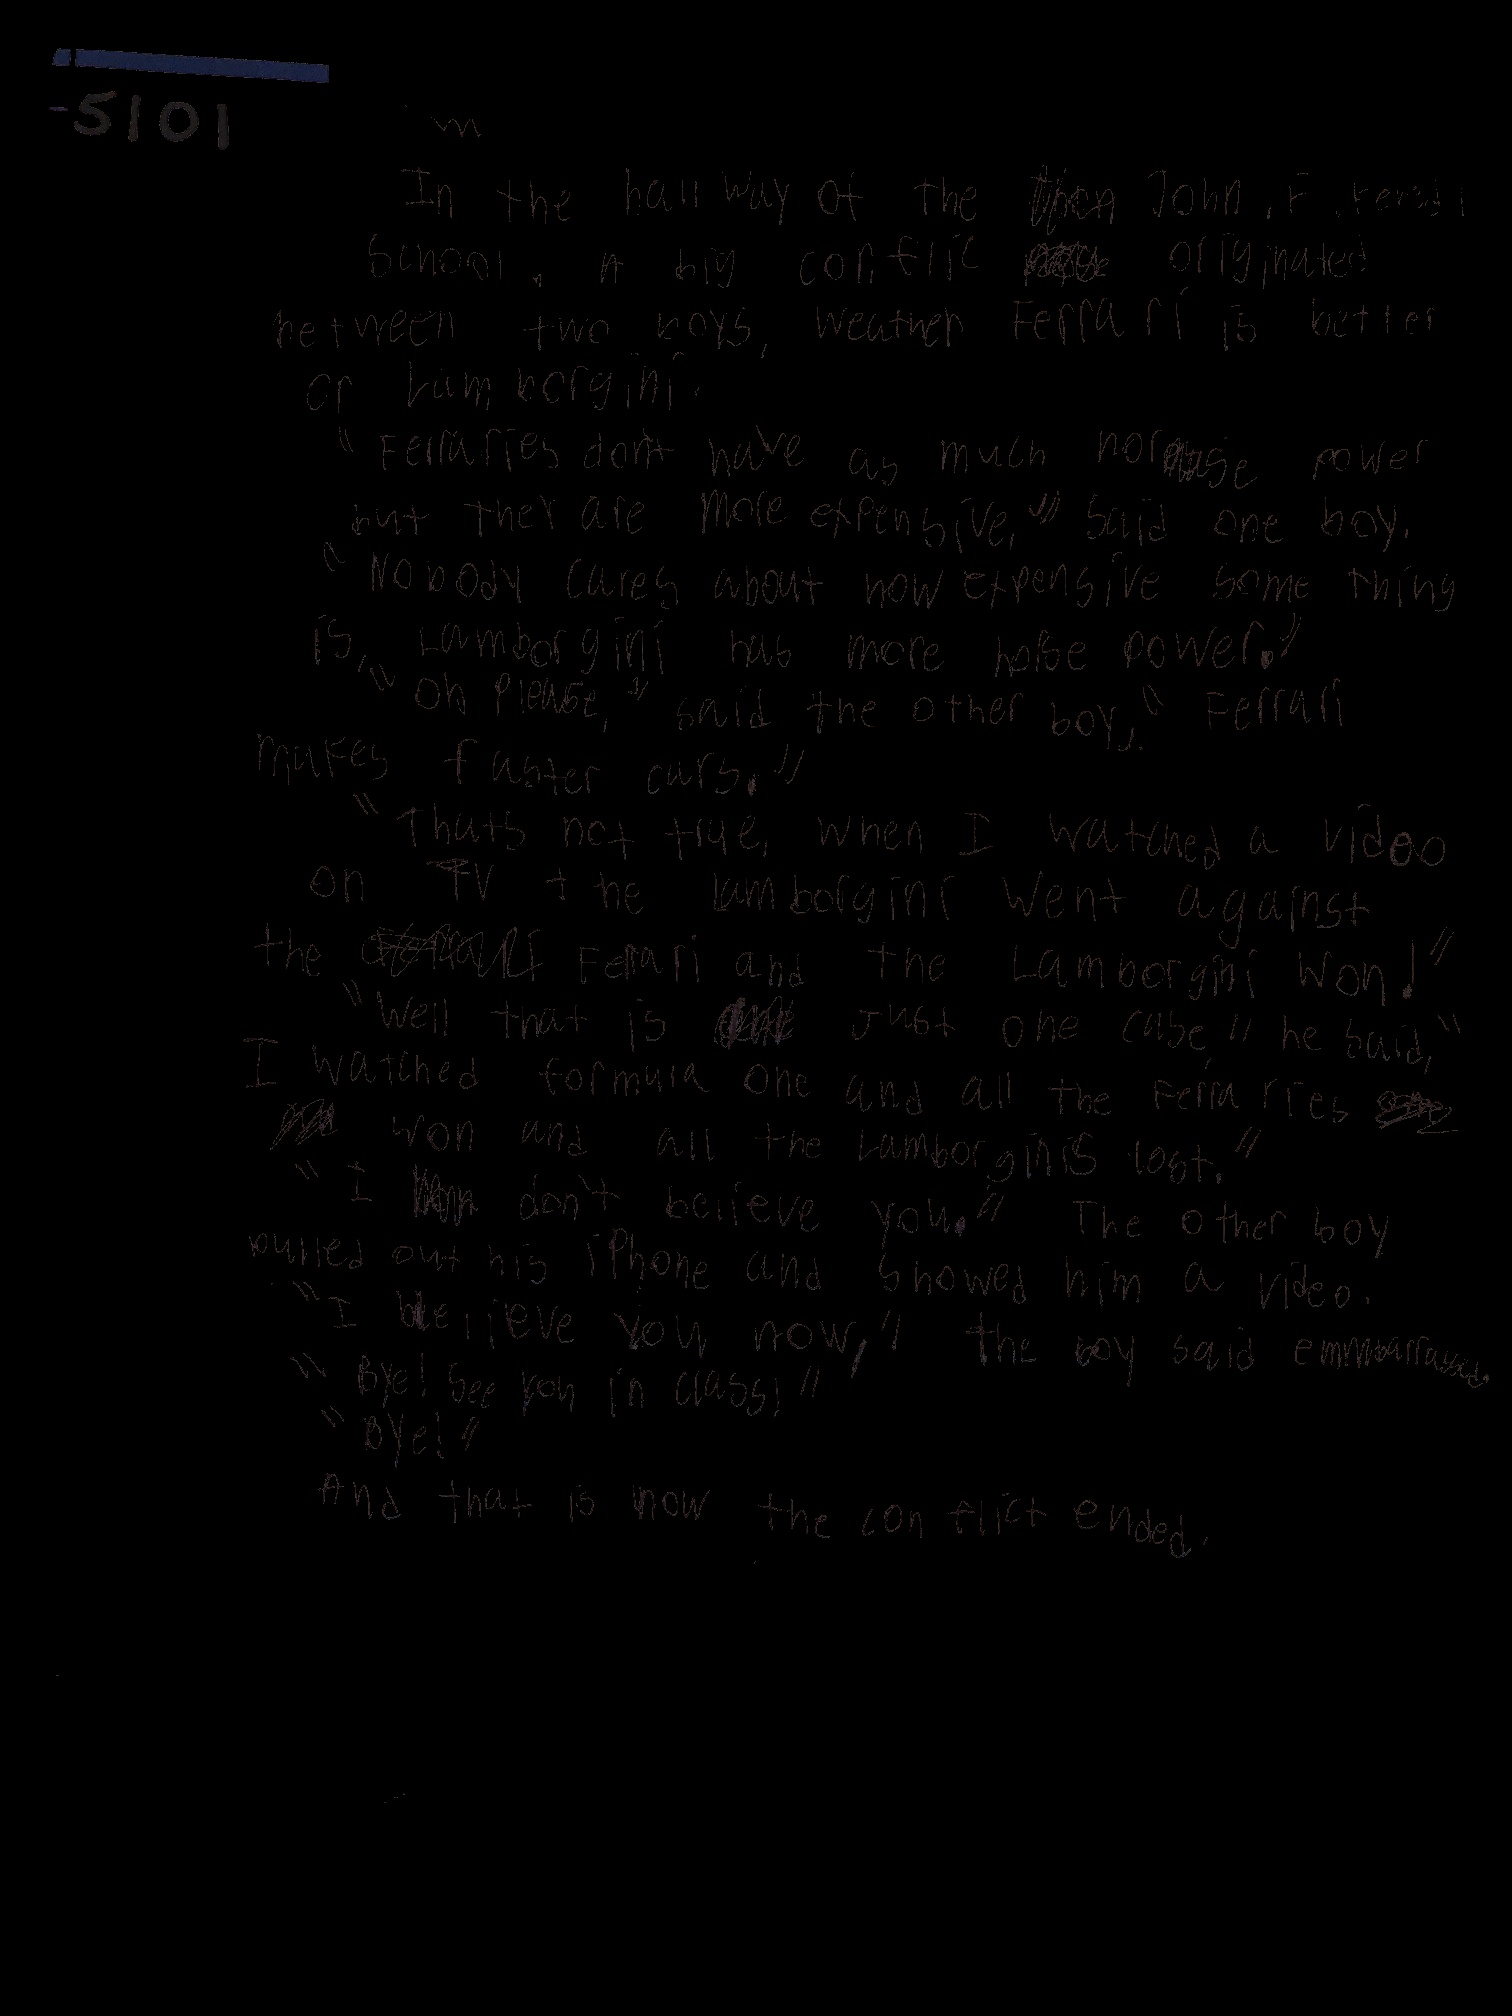 -5101
In the hallway of the John. F.
School. A big conflic originated
between two boys, weather Ferrari is better
or Lamborgini.
"Ferraries don't have as much horse power
but they are more expensive," said one boy.
"Nobody cares about how expensive some thing
is, Lamborgini has more horse power."
"Oh please," said the other boy, "Ferrari
makes faster cars."
"Thats not true, when I watched a video
on TV the lamborgini went against
the Ferrari and the Lamborgini won!"
"Well that is just one case," he said, "
I watched formula one and all the Ferraries
won and all the Lamborginis lost."
"I don't believe you." The other boy
pulled out his iPhone and showed him a video.
"I believe you now," the boy said emmbarrassed.
"Bye! See you in class!"
"Bye!"
And that is how the conflict ended.